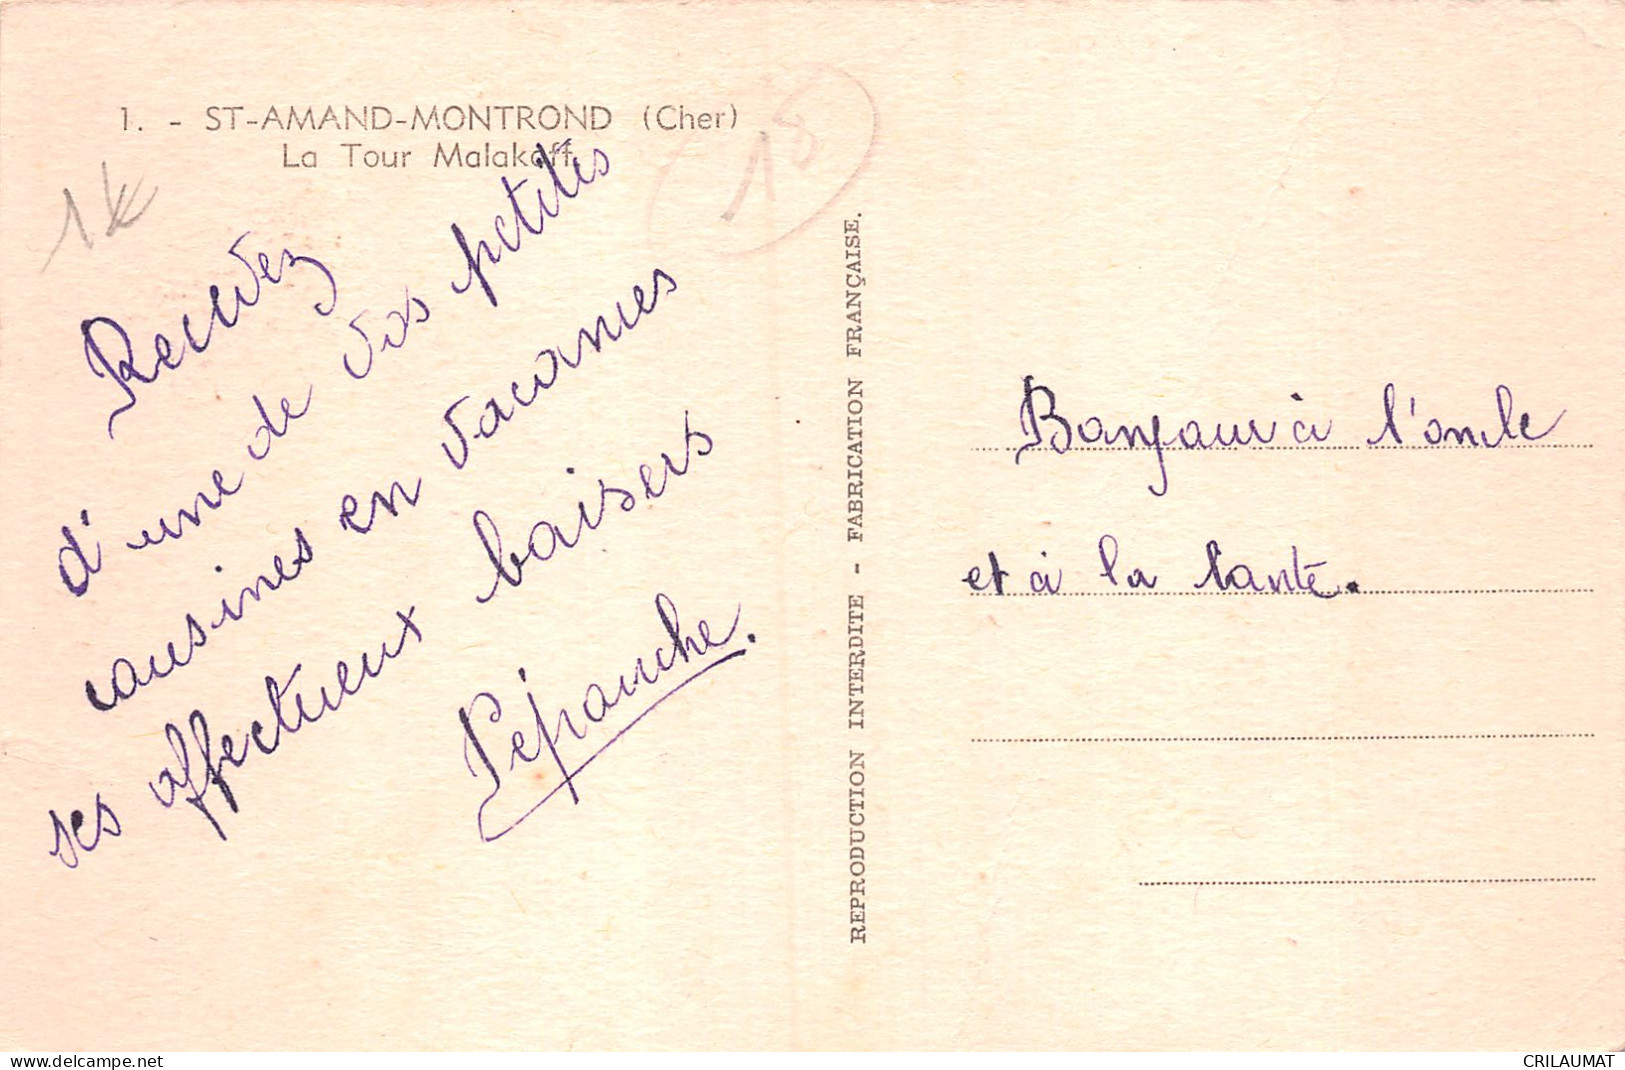 1. - ST-AMAND-MONTROND (Cher)
La Tour Malakoff
18
1k
Recevez
d'une de vos petites
cousines en vacances
ses affectueux baisers
Pépanche.
REPRODUCTION INTERDITE - FABRICATION FRANÇAISE.
Bonjour à l'oncle
et à la tante.
delcampe.net
CRILAUMAT